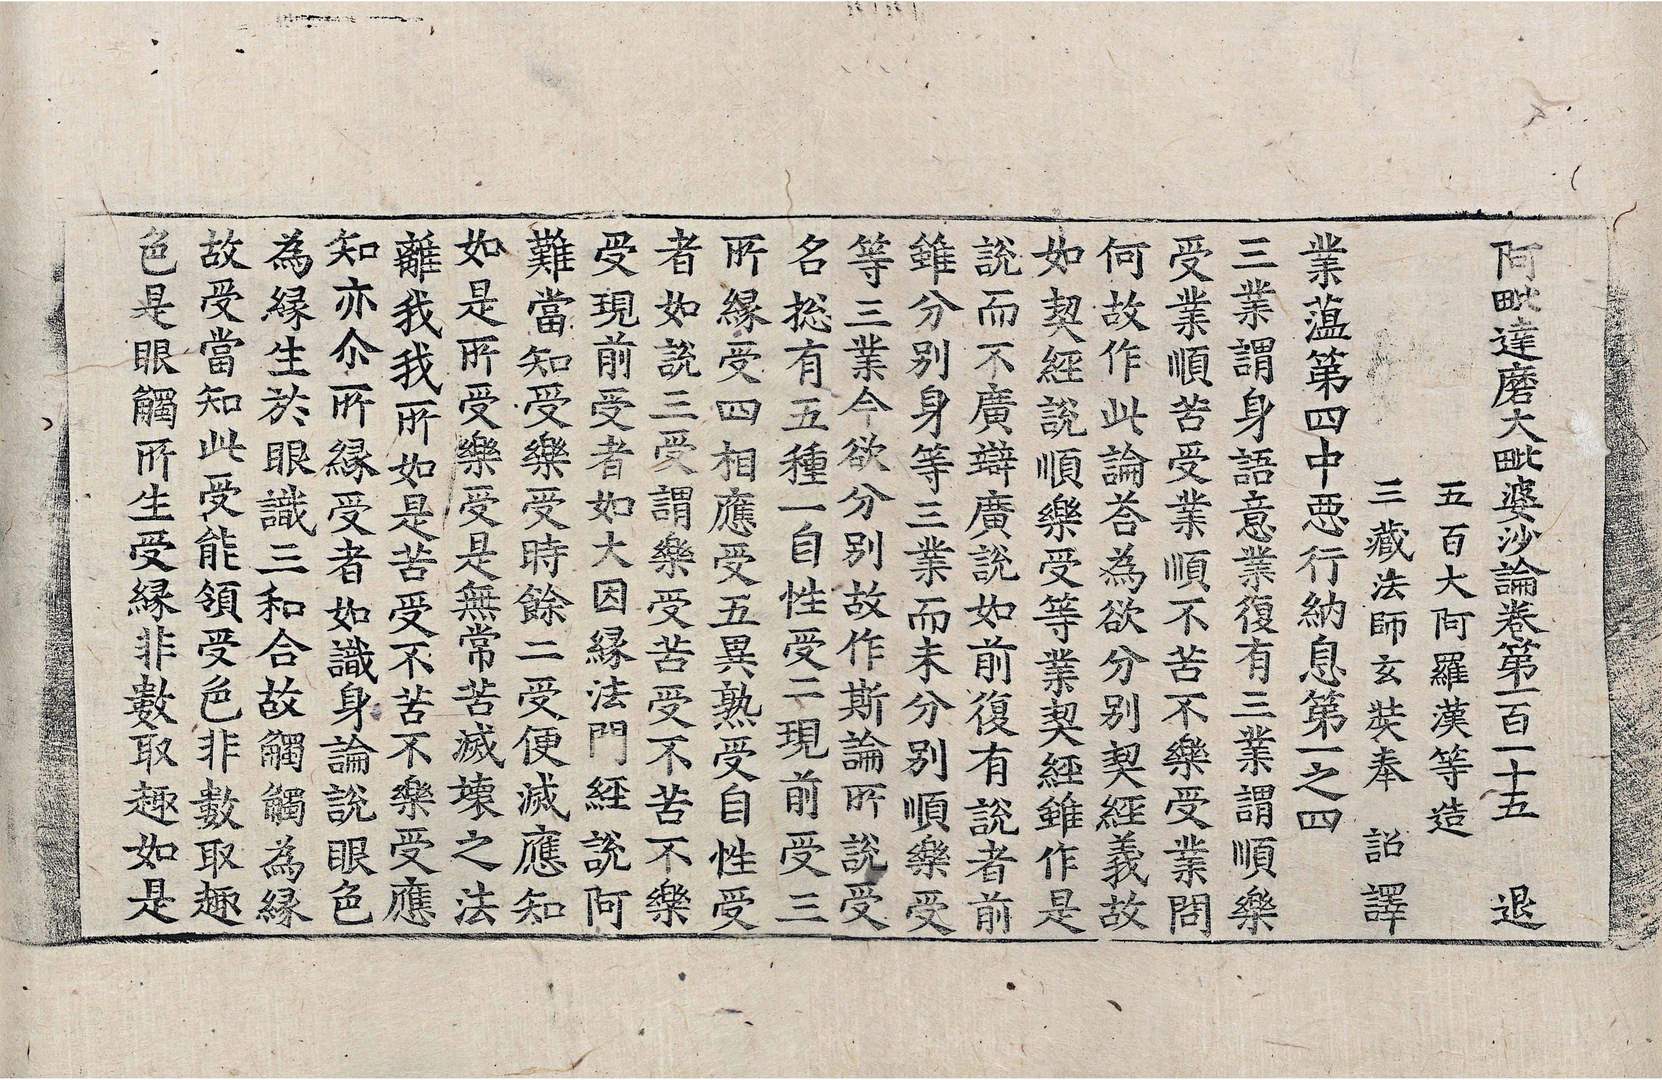 阿毗達磨大毗婆沙論卷第一百一十五 退
五百大阿羅漢等造
三藏法師玄奘奉 詔譯
業薀第四中惡行納息第一之四
三業謂身語意業復有三業謂順樂
受業順苦受業順不苦不樂受業問
何故作此論荅為欲分別契經義故
如契經說順樂受等業契經雖作是
說而不廣辯廣說如前復有說者前
雖分別身等三業而未分別順樂受
等三業今欲分別故作斯論所說受
名揔有五種一自性受二現前受三
所緣受四相應受五異熟受自性受
者如說三受謂樂受苦受不苦不樂
受現前受者如大因縁法門經說阿
難當知受樂受時餘二受便滅應知
如是所受樂受是無常苦滅壞之法
離我我所如是苦受不苦不樂受應
知亦尒所縁受者如識身論說眼色
為縁生於眼識三和合故觸觸為縁
故受當知此受能領受色非數取趣
色是眼觸所生受縁非數取趣如是